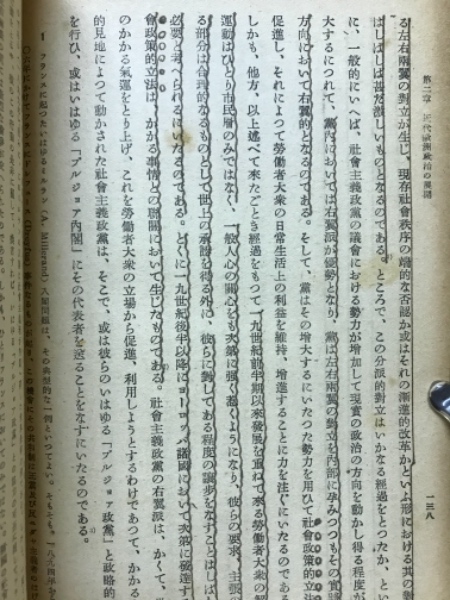 第二章 近代歐洲政治の展開
一三八
る左右兩翼の對立が生じ、現存社會秩序の端的な否認か或はそれの漸進的改革かといふ形における其の對
ばしばしば甚だ激しいものとなるのである。ところで、この分派的對立はいかなる經過をとつたか、とい
に、一般的にいへば、社會主義政黨の議會における勢力が增加して現實の政治の方向を動かし得る程度が
大するにつれて、黨內においては右翼派が優勢となり、黨は左右兩翼の對立を內部に孕みつつもその實踐
方向において右翼的となるのである。そして、黨はその增大するにいたつた勢力を用ひて社會政策的立法
促進し、それによつて勞働者大衆の日常生活上の利益を維持、增進することに力を注ぐにいたるのである
しかも、他方、以上述べて來たごとき經過をもつて一九世紀前半期以來發展を重ねて來る勞働者大衆の解
運動はひとり市民層のみではなく、一般人心の關心をも次第に強く惹くやうになり、彼らの要求、主張の
る部分は合理的なるものとして世上の承認を得る外に、彼らに對してある程度の讓步をなすことはしば
必要と考へられるにいたるのである。とくに一九世紀後半以降にヨーロッパ諸國において次第に發達す
會政策的立法は、かかる事情との聯關において生じたものである。社會主義政黨の右翼派は、かくて、
のかかる氣運をとり上げ、これを勞働者大衆の立場から促進、利用しようとするわけであつて、かかる
的見地によつて動かされた社會主義政黨は、そこで、或は彼らのいはゆる「ブルジョア政黨」と政略的
を行ひ、或はいはゆる「ブルジョア內閣」にその代表者を送ることをなすにいたるのである。
1 フランスに起つたいはゆるミルラン(A. Millerand)入閣問題は、その典型的な一例といつてよい。そもそも、一八九四年